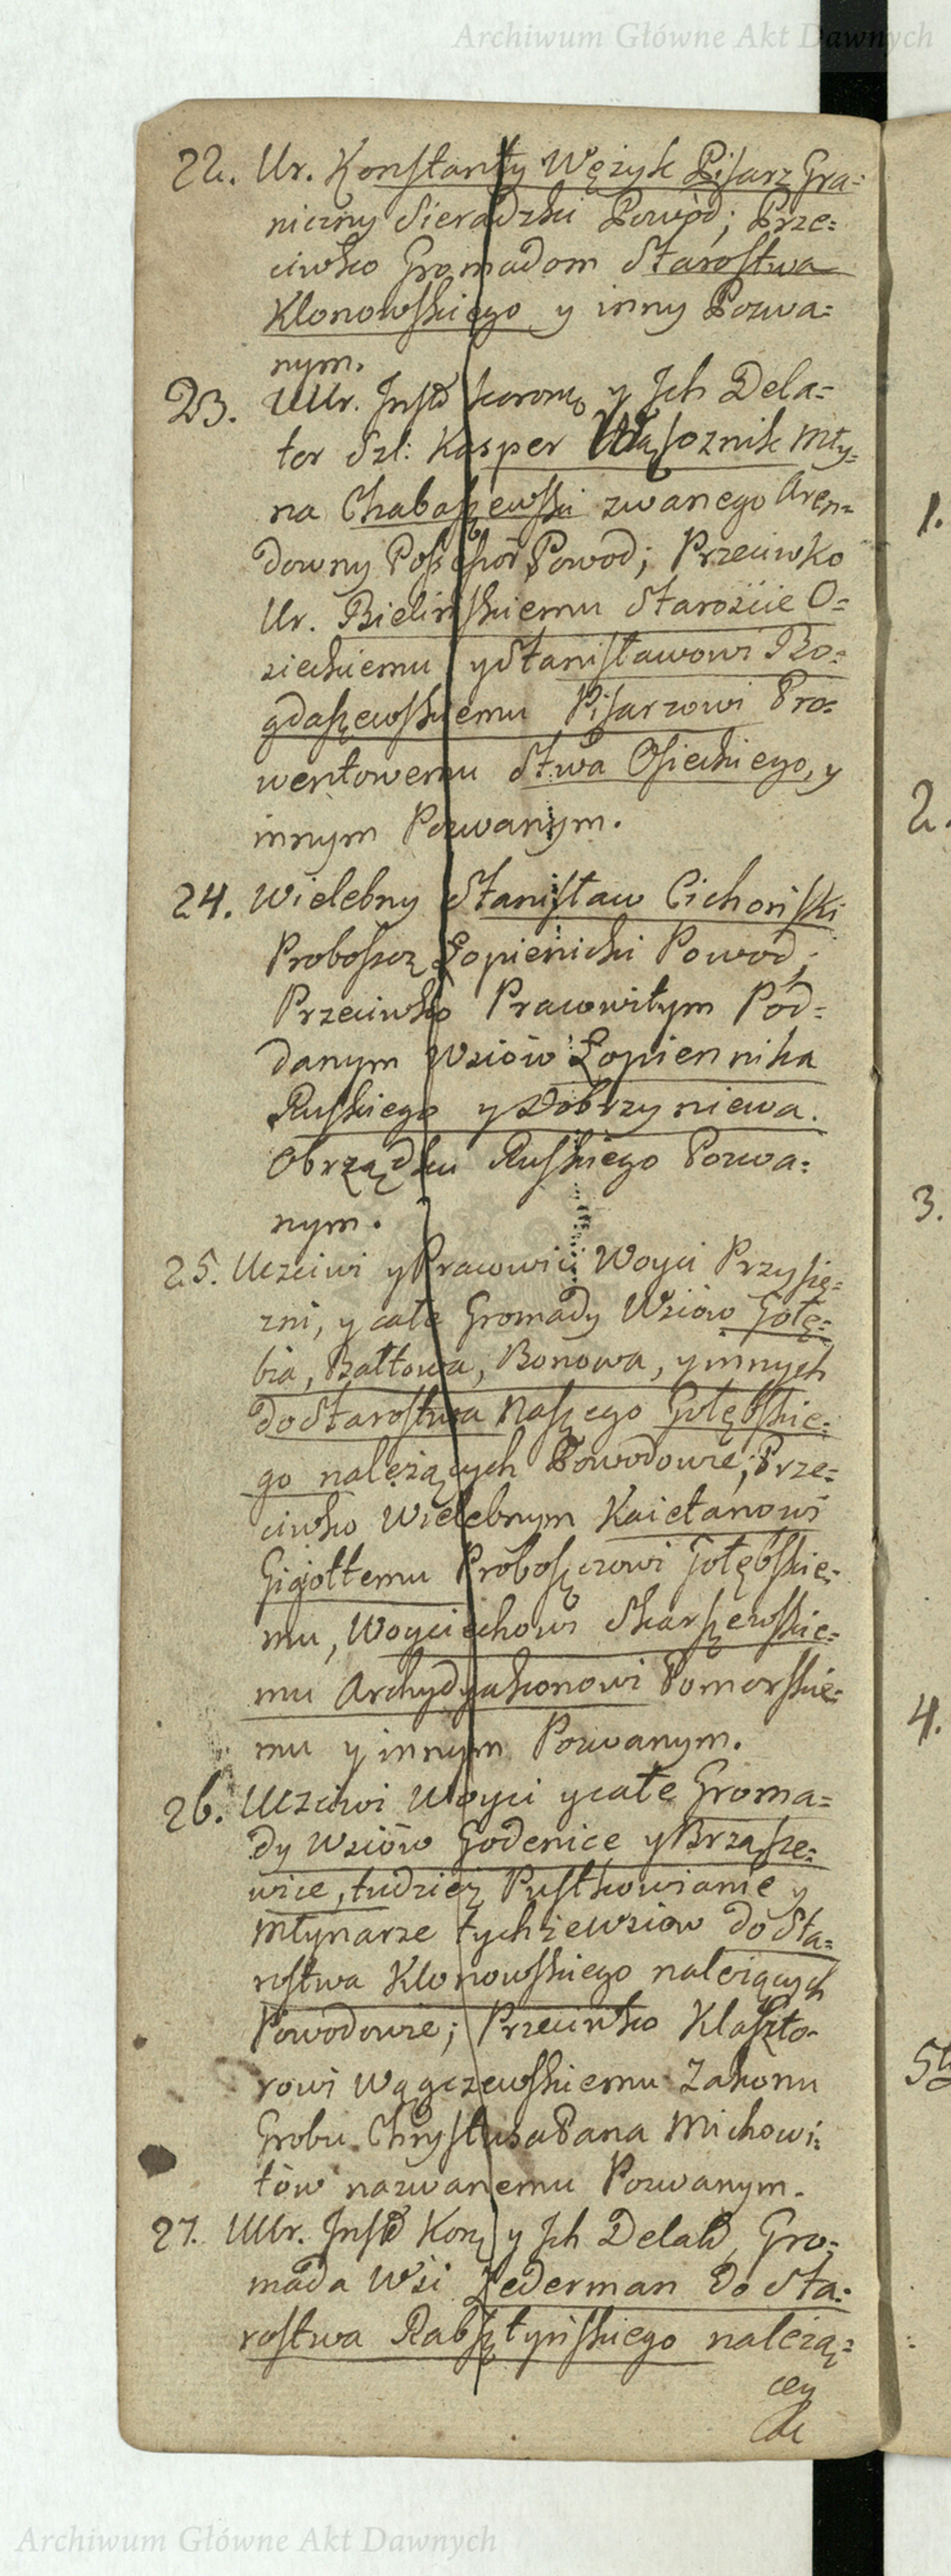 Archiwum Główne Akt Dawnych
22. Ur. Konstanty Wężyk Pisarz Gra=
niczny Sieradzki Powód; Prze=
ciwko Gromadom Starostwa
Klonowskiego y inny Pozwa=
nym.
23. UUr. Instő koronę y Jch Dela=
tor Szl: Kasper Młyna
na Chabaszewski zwanego Aren=
downy Possessor Powod; Przeciwko
Ur. Bielińskiemu Staroście O=
sieckiemu y Stanisławowi Bo=
gdaszewskiemu Pisarzowi Pro=
wentowemu Stwa Osieckiego, y
innym Pozwanym.
24. Wielebny Stanisław Cichoński
Proboszcz Łopieńicki Powod;
Przeciwko Pracowitym Pod=
danym Wsiów Łopiennika
Ruskiego y Dobrzyniewa.
Obrządku Ruskiego Pozwa=
nym.
25. Uczciwi y Pracowici Woyci Przysię=
zni, y całe Gromady Wsiów Gołę=
bia, Bałtowa, Bonowa, y innych
do Starostwa Naszego Gołębskie=
go należących Powodowie; Prze=
ciwko Wielebnym Kaietanowi
Gigołtemu Proboszczowi Gołębskie=
mu, Woyciechowi Skarszewskie=
mu Archydyakonowi Pomorskie=
mu y innym Pozwanym.
26. Uczciwi Woyci y całe Groma=
dy Wsiów Godenice y Brząsze=
wice, tudzież Pustkowianie y
Młynarze tychże Wsiow do Sta=
rostwa Klonowskiego należących
Powodowie; Przeciwko Klaszto=
rowi Wągczewskiemu Zakonu
Grobu Chrystusa Pana Michowi=
tów nazwanemu Pozwanym.
27. UUr. Instő Korą y Jch Delatő, Gro=
mada Wsi Zederman do Sta=
rostwa Rabsztyńskiego należą=
cey
1.
2.
3.
4.
Archiwum Główne Akt Dawnych